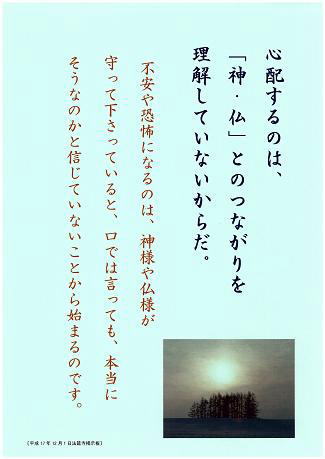 心配するのは、
「神・仏」とのつながりを
理解していないからだ。
不安や恐怖になるのは、神様や仏様が
守って下さっていると、口では言っても、本当に
そうなのかと信じていないことから始まるのです。
(平成17年12月1日法話寺掲示板)